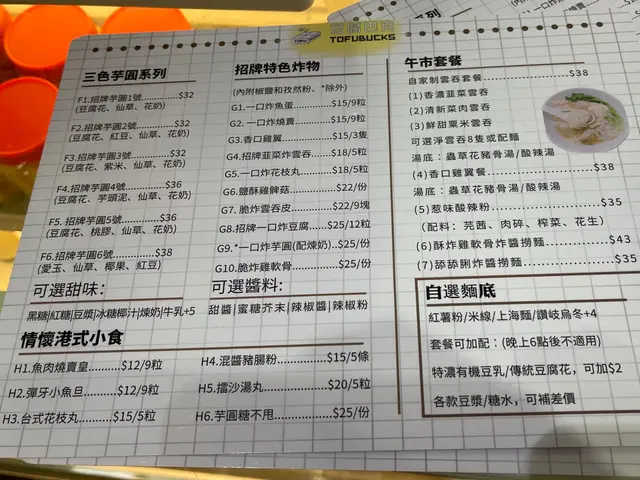 豆腐巴克
TOFUBUCKS
三色芋圓系列
F1.招牌芋圓1號..........$32
(豆腐花、仙草、花奶)
F2.招牌芋圓2號..........$32
(豆腐花、紅豆、仙草、花奶)
F3.招牌芋圓3號..........$32
(豆腐花、紫米、仙草、花奶)
F4.招牌芋圓4號..........$36
(豆腐花、芋頭泥、仙草、花奶)
F5. 招牌芋圓5號..........$36
(豆腐花、桃膠、仙草、花奶)
F6.招牌芋圓6號..........$38
(愛玉、仙草、椰果、紅豆)
可選甜味:
黑糖|紅糖|豆漿|冰糖椰汁|煉奶|牛乳+5
招牌特色炸物
(內附椒鹽和孜然粉、*除外)
G1.一口炸魚蛋..........$15/9粒
G2. 一口炸燒賣..........$15/9粒
G3.香口雞翼..........$15/3隻
G4.招牌韮菜炸雲吞..........$18/5粒
G5.一口炸花枝丸..........$18/5粒
G6.鹽酥雞髀菇..........$22/份
G7. 脆炸雲吞皮..........$22/9塊
G8.招牌一口炸豆腐..........$25/12粒
G9.*一口炸芋圓(配煉奶)..$25/份
G10.脆炸雞軟骨..........$25/份
可選醬料:
甜醬|蜜糖芥末|辣椒醬|辣椒粉
情懷港式小食
H1.魚肉燒賣皇..........$12/9粒
H2.彈牙小魚旦..........$12/9粒
H3.台式花枝丸..........$15/5粒
H4.混醬豬腸粉..........$15/5條
H5.擂沙湯丸..........$20/5粒
H6.芋圓糖不甩..........$25/份
午市套餐
自家制雲吞套餐..........$38
(1)香濃韮菜雲吞
(2)清新菜肉雲吞
(3)鮮甜粟米雲吞
可選淨雲吞8隻或配麵
湯底：蟲草花豬骨湯/酸辣湯
(4)香口雞翼餐..........$38
湯底：蟲草花豬骨湯/酸辣湯
(5)惹味酸辣粉..........$35
(配料：芫茜、肉碎、榨菜、花生)
(6)酥炸雞軟骨炸醬撈麵..........$43
(7)舔舔脷炸醬撈麵..........$35
自選麵底
紅薯粉/米線/上海麵/讚岐烏冬+4
套餐可加配：(晚上6點後不適用)
特濃有機豆乳/傳統豆腐花，可加$2
各款豆漿/糖水，可補差價